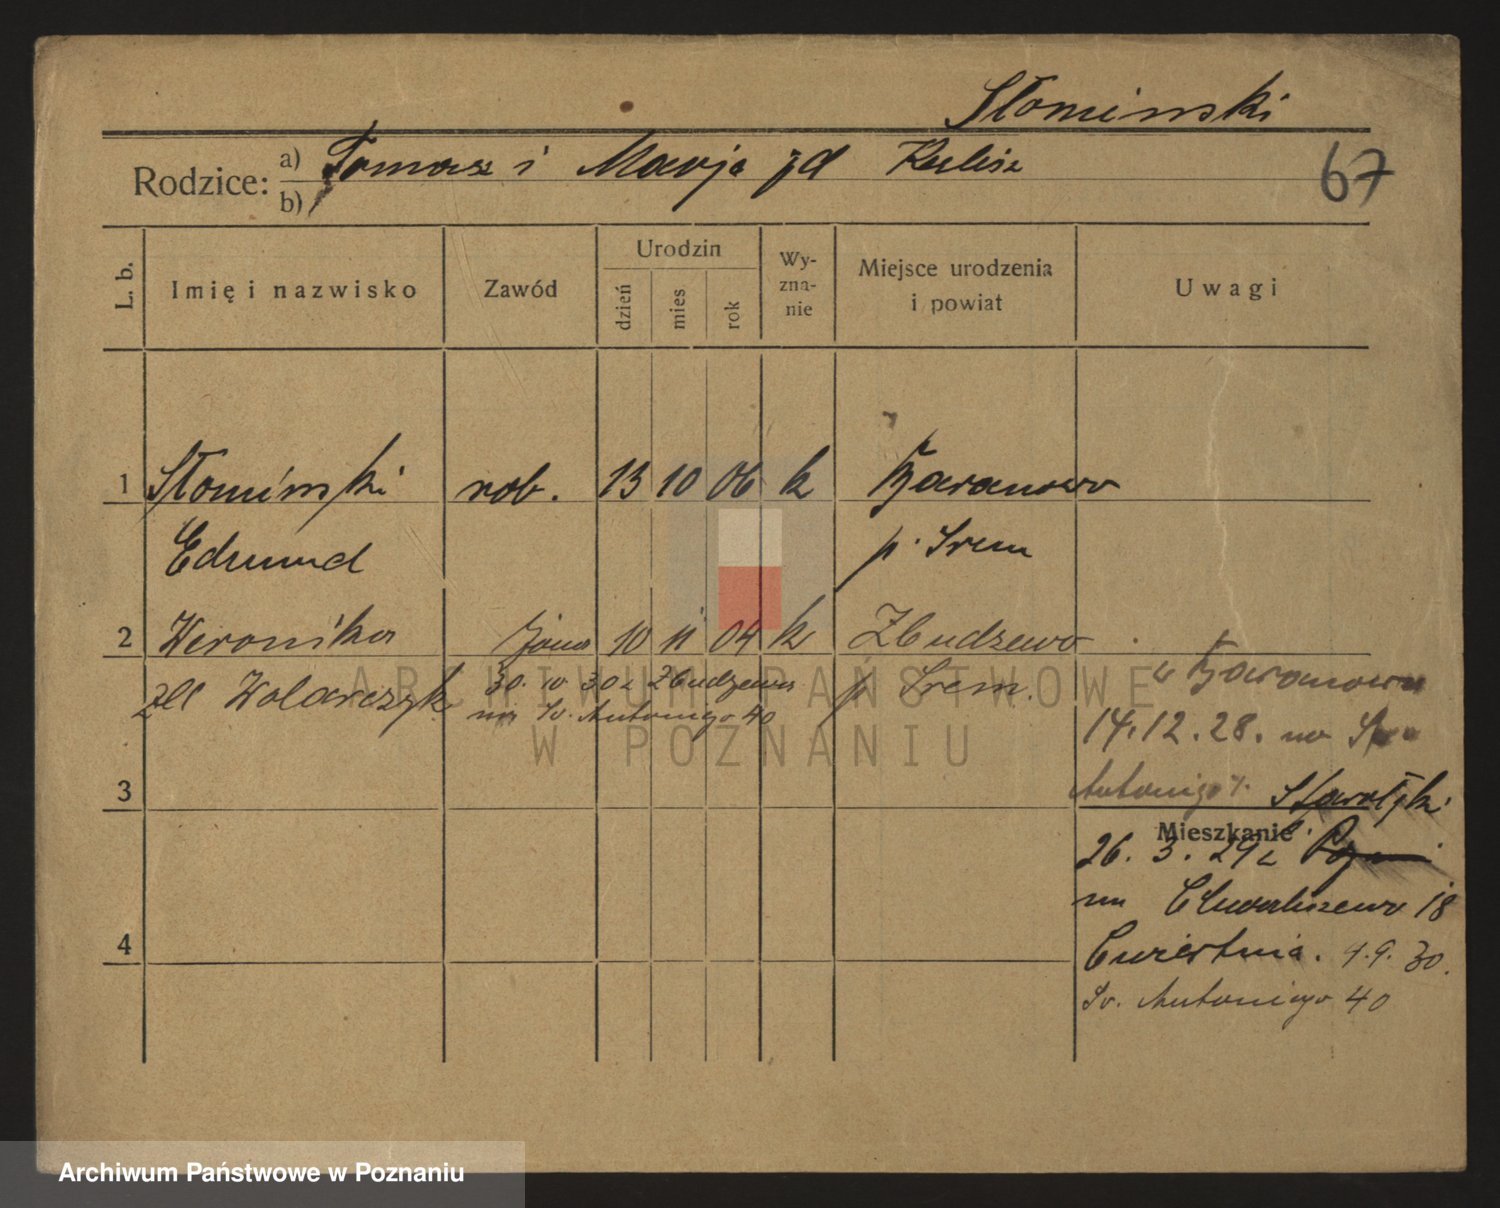 Słominski
Rodzice: a) Tomasz i Marja zd Kulisz
b)
67
L. b.
Imię i nazwisko
Zawód
Urodzin
dzień
mies
rok
Wy-
zna-
nie
Miejsce urodzenia
i powiat
Uwagi
1 Słominski rob. 13 10 06 k Baranowo
Edmund p. Srem
2 Weronika żona 10 11 04 k Zbudzewo
zd Wolarczyk 30. 10 30 z Zbudzewa p Srem.
na Sv. Antoniego 40
z Baranowa
14.12.28. na
Antoniego
3
Mieszkanie
26. 3. 29 z
na Chwaliszewo 18
Cwiertnia. 9.9.30.
4
Sv. Antoniego 40
ARCHIWUM PAŃSTWOWE
W POZNANIU
Archiwum Państwowe w Poznaniu